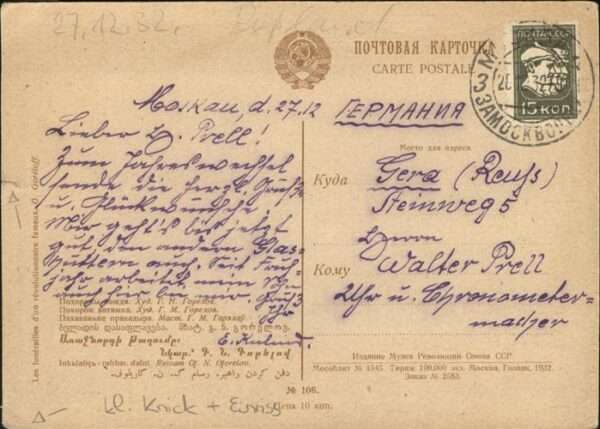 27.12.32.
ПОЧТОВАЯ КАРТОЧКА
CARTE POSTALE
ПОЧТА СССР
15 КОП
ЗАМОСКВО
Moskau, d. 27.12
Lieber H. Prell!
Zum Jahreswechsel
sende die herzl. Grüße
u. Glückwünsche.
Mir geht's bis jetzt
gut, den andern Glas-
bläsern auch. Seit Früh-
jahr arbeitet mein Sohn
auch hier bei mir. Gruß
Ihr
ГЕРМАНИЯ
Место для адреса
Куда
Gera (Reuß)
Steinweg 5
Herrn
Кому
Walter Prell
Uhr u. Chronometer-
macher
Les funérailles d'un révolutionnaire fameux. G. Goréloff.
Похороны вождя. Худ. Г. Н. Горелов.
Похорон ватажка. Худ. Г. Н. Горелов.
Издание Музея Революции Союза ССР.
Мособлит № 4345. Тираж 100.000 экз. Москва, Гознак, 1932.
Заказ № 2583.
№ 106.
Цена 10 коп.
kl. Knick + Einriss